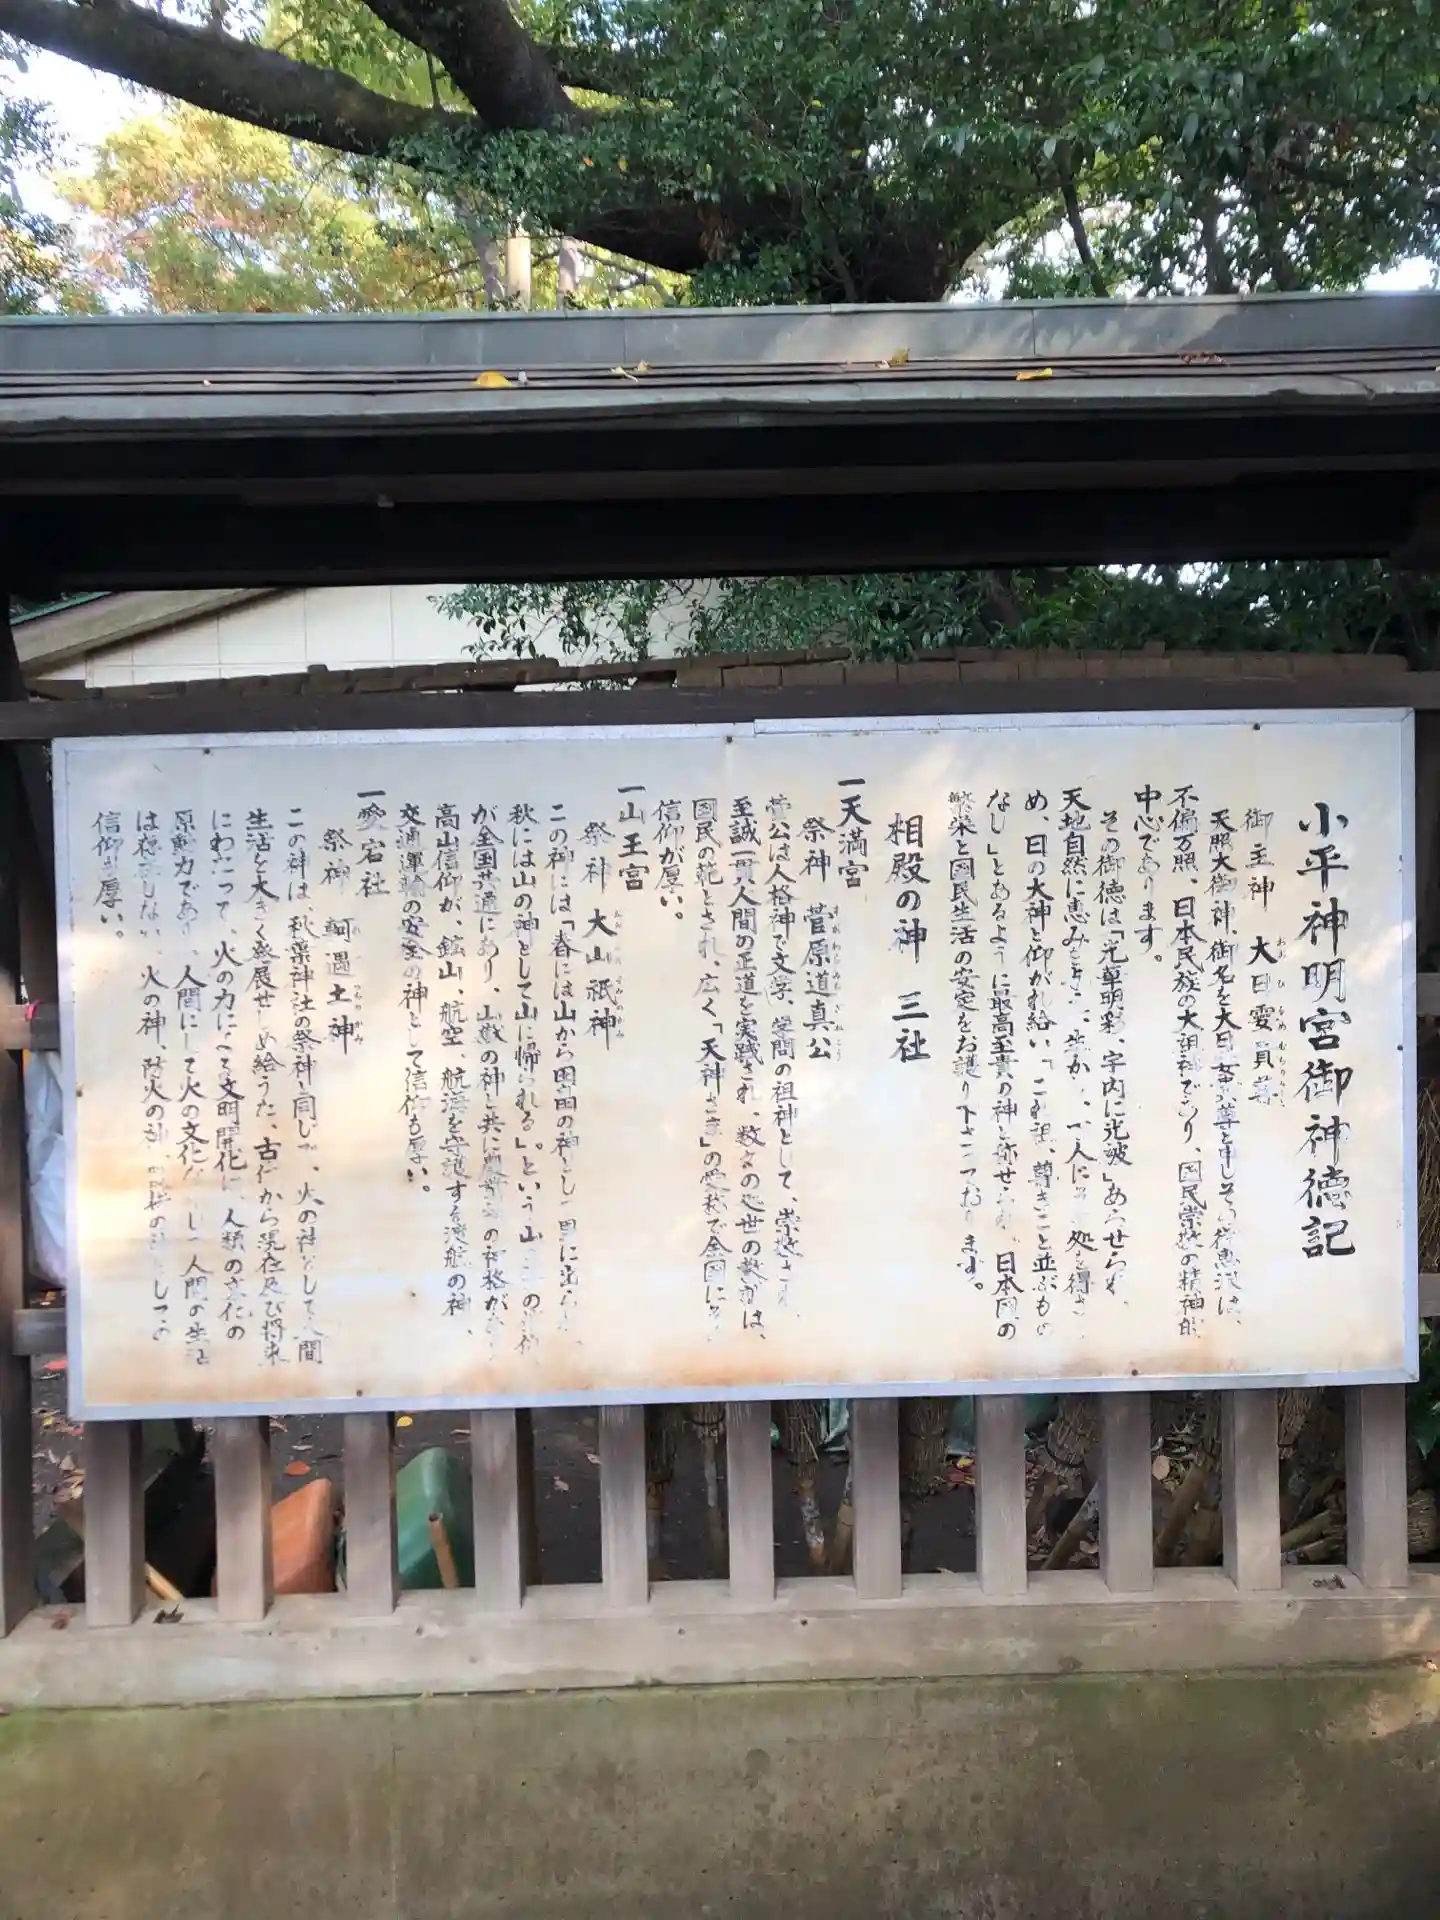 小平神明宮御神徳記
御主神 大日孁貴尊
天照大御神、御名を大日孁尊と申しその御恵沢は、
不偏万照、日本民族の大祖神であり、国民崇敬の精神的
中心であります。
その御徳は「光華明彩、宇内に光被」あらせられ、
天地自然に恵みを 生か 人に 処を得さ
め、日の大神と仰がれ給い「これ祖、尊きこと並ぶもの
なし」とあるように最高至貴の神と称せられ、日本国の
繁栄と国民生活の安定をお護り下さっております。
相殿の神 三社
一天満宮
祭神 菅原道真公
菅公は人格神で文学、学問の祖神として、崇敬され、
至誠一貫人間の正道を実践され、数々の処世の教訓は、
国民の範とされ、広く「天神さま」の愛称で全国にその
信仰が厚い。
一山王宮
祭神 大山祇神
この神には「春には山から田畑の神として里に出られ、
秋には山の神として山に帰られる」。という山 の信仰
が全国共通にあり、山嶽の神と共に農 の神格があり
高山信仰が、鉱山、航空、航海を守護する渡航の神、
交通運輸の安全の神として信仰も厚い。
一愛宕社
祭神 軻遇土神
この神は、秋葉神社の祭神と同じで、火の神として人間
生活を大きく発展せしめ給うた、古代から現在及び将来
にわたって、火の力による文明開化は、人類の文化の
原動力であり、人間にして火の文化なくして人間の生活
は存在しない、火の神、防火の神、 の神としての
信仰も厚い。